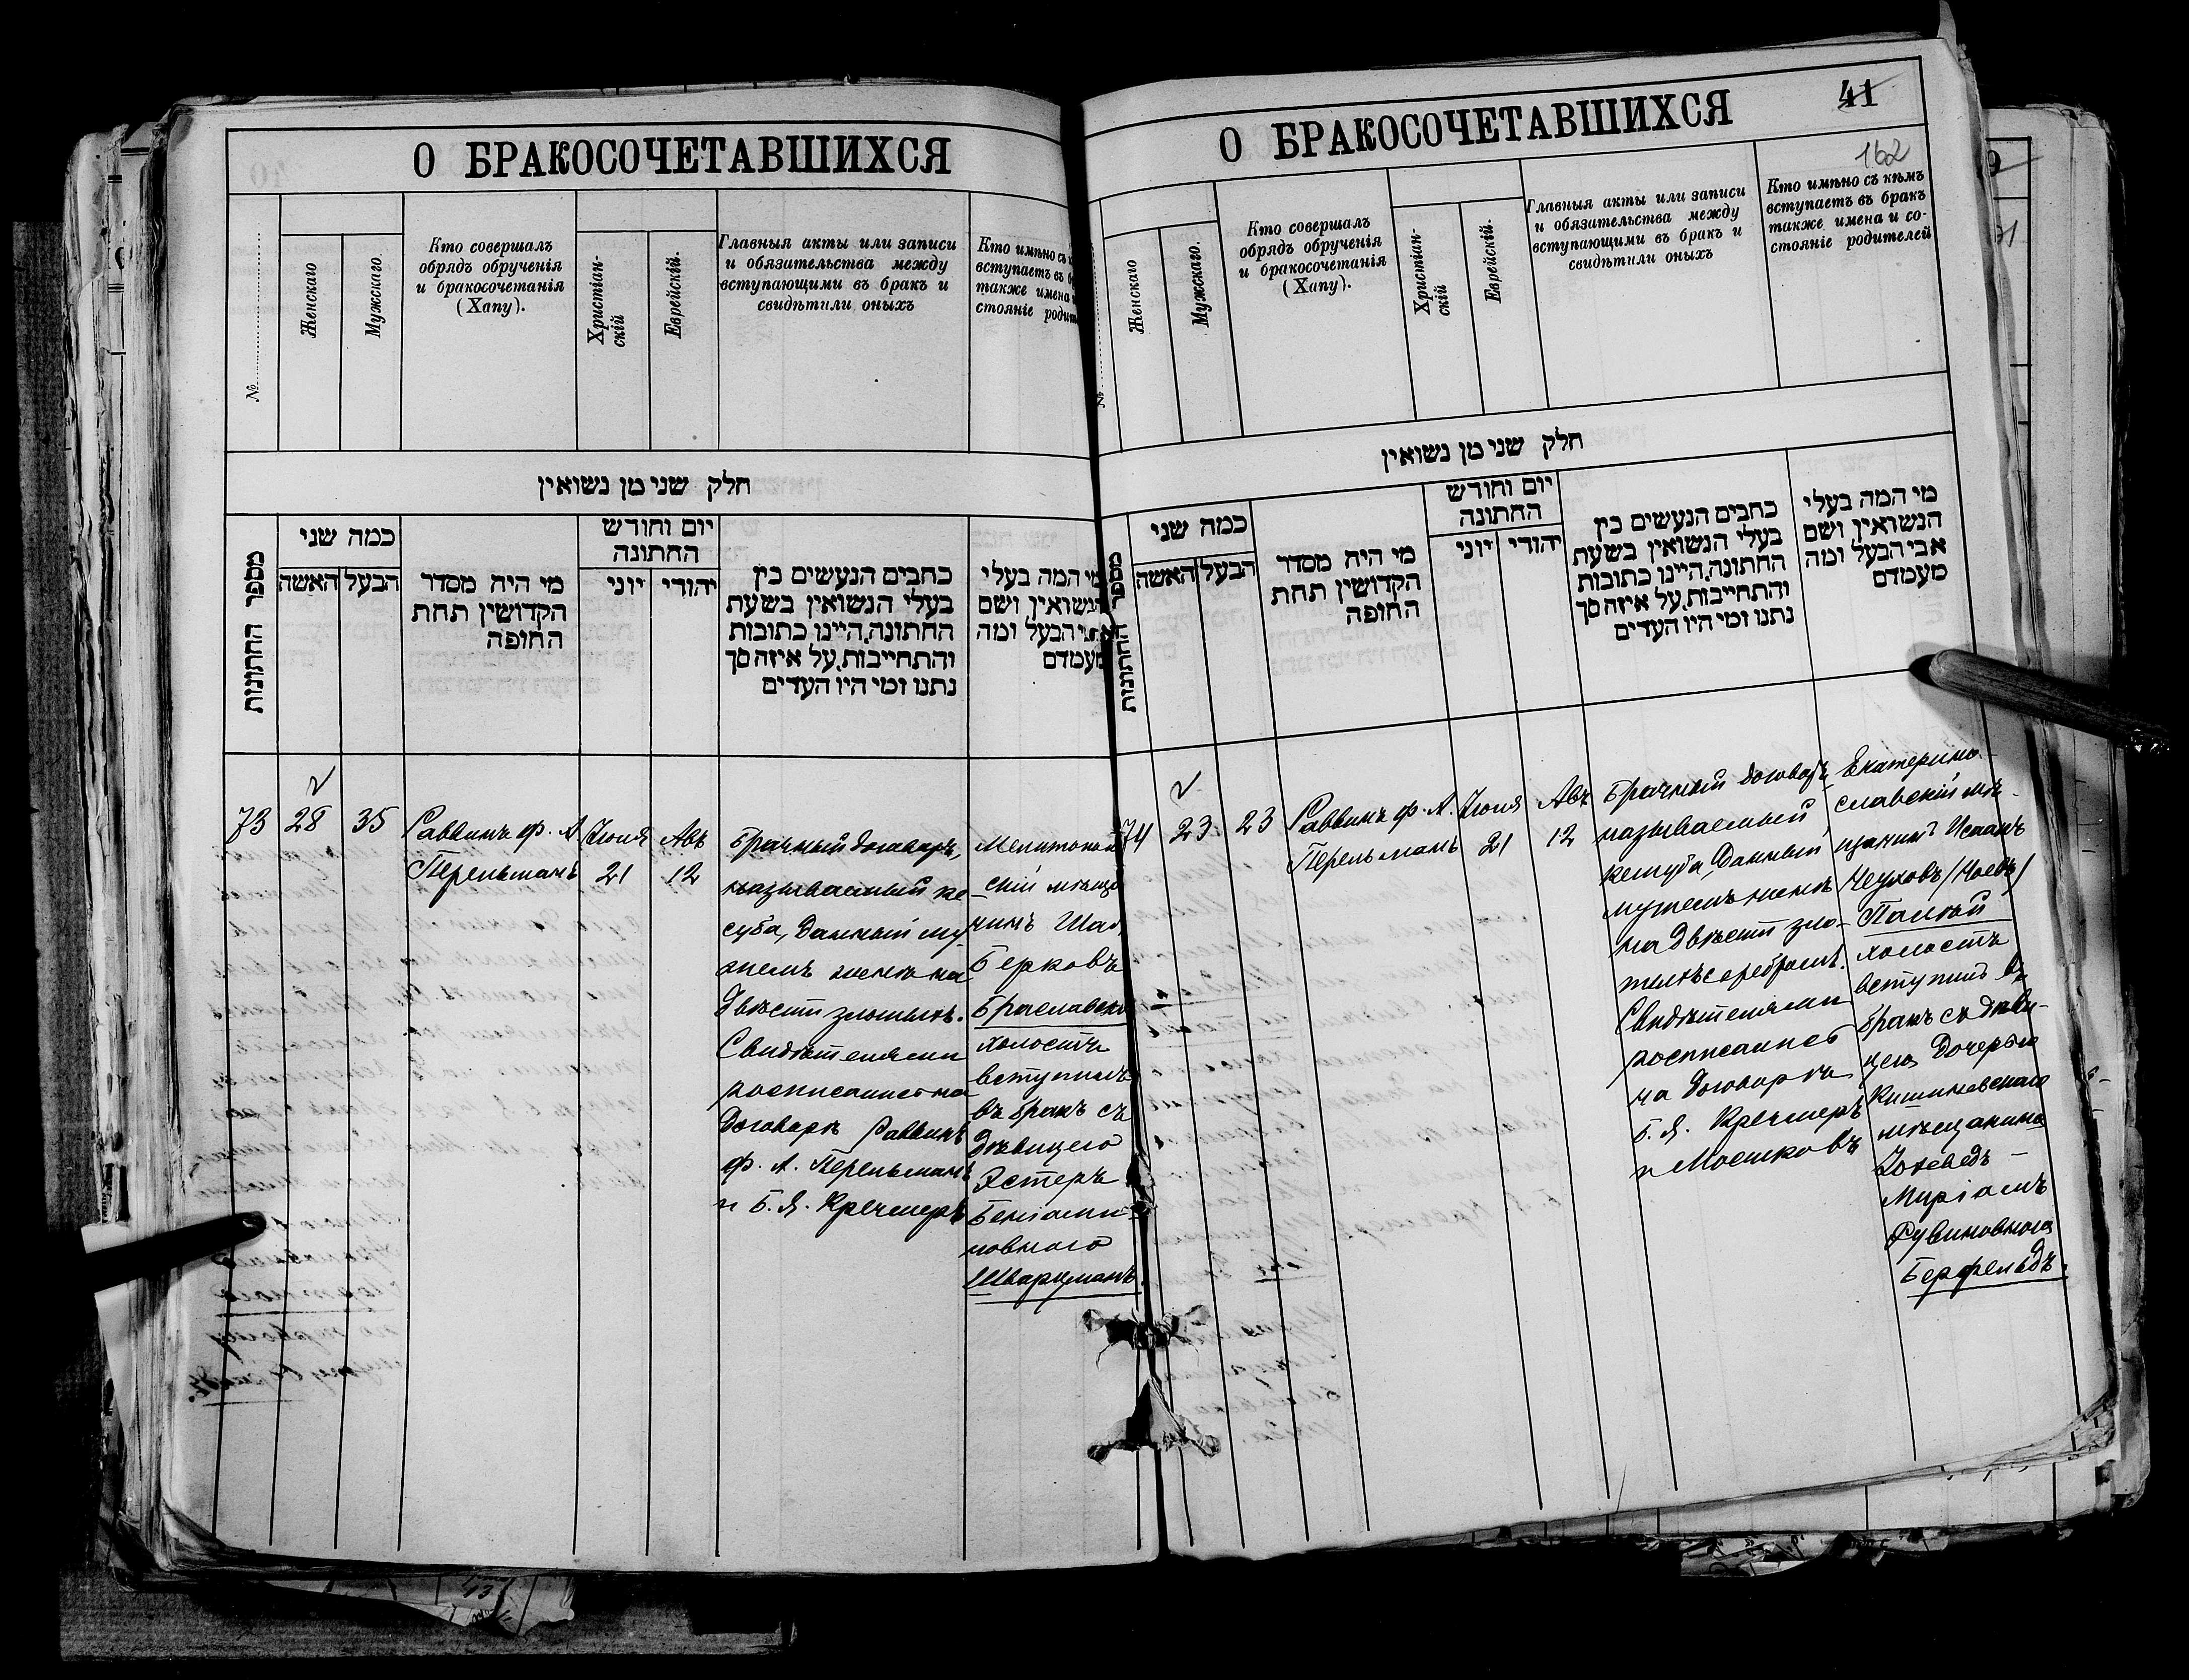 О БРАКОСОЧЕТАВШИХСЯ
№
Женскаго
Мужскаго.
Кто совершалъ
обрядъ обрученія
и бракосочетанія
(Хапу).
Христіан-
скій
Еврейскій.
Главныя акты или записи
и обязательства между
вступающими въ бракъ и
свидѣтили оныхъ
Кто имѣно съ
вступаетъ въ
также имена
стояніе
חלק שני מן נשואין
מספר החתונות
כמה שני
האשה
הבעל
מי היה מסדר
הקדושין תחת
החופה
יום וחודש
החתונה
יוני
יהודי
כתבים הנעשים בין
בעלי הנשואין בשעת
החתונה, היינו כתובות
והתחייבות, על איזה סך
נתנו ומי היו העדים
מי המה בעלי
הנשואין ושם
אבי הבעל ומה
מעמדם
73
28
35
Раввинъ Ф. А.
Перельманъ
Іюля
21
Авъ
12
Брачный договоръ,
называемый ке
суба, данный му
жемъ женѣ на
двѣсти злотыхъ.
Свидѣтелями
росписались на
договорѣ Раввинъ
Ф. А. Перельманъ
и Б. Я. Кречмеръ
Мелитополь
скій мѣща
нинъ
Берковъ
Браславск
холостъ
вступилъ
въ бракъ съ
дѣвицею
Эстеръ
Беніами-
новною
Шварцманъ.
41
162
О БРАКОСОЧЕТАВШИХСЯ
№
Женскаго
Мужскаго.
Кто совершалъ
обрядъ обрученія
и бракосочетанія
(Хапу).
Христіан-
скій
Еврейскій.
Главныя акты или записи
и обязательства между
вступающими въ бракъ и
свидѣтили оныхъ
Кто имѣно съ кѣмъ
вступаетъ въ бракъ
также имена и со-
стояніе родителей
חלק שני מן נשואין
מספר החתונות
כמה שני
האשה
הבעל
מי היה מסדר
הקדושין תחת
החופה
יום וחודש
החתונה
יוני
יהודי
כתבים הנעשים בין
בעלי הנשואין בשעת
החתונה, היינו כתובות
והתחייבות, על איזה סך
נתנו ומי היו העדים
מי המה בעלי
הנשואין ושם
אבי הבעל ומה
מעמדם
74
23
23
Раввинъ Ф. А.
Перельманъ
Іюля
21
Авъ
12
Брачный договоръ,
называемый
кетуба, данный
мужемъ женѣ
на двѣсти зло-
тыхъ серебромъ.
Свидѣтелями
росписались
на договорѣ
Б. Я. Кречмеръ
и Мошковъ
Екатерино-
славскій мѣ-
щанинъ Исаакъ
холостъ
вступилъ въ
бракъ съ дѣви-
цею дочерью
Кишиневскаго
мѣщанина
Іохеведъ -
Миріамъ
Рувиновною
Берфельдъ.